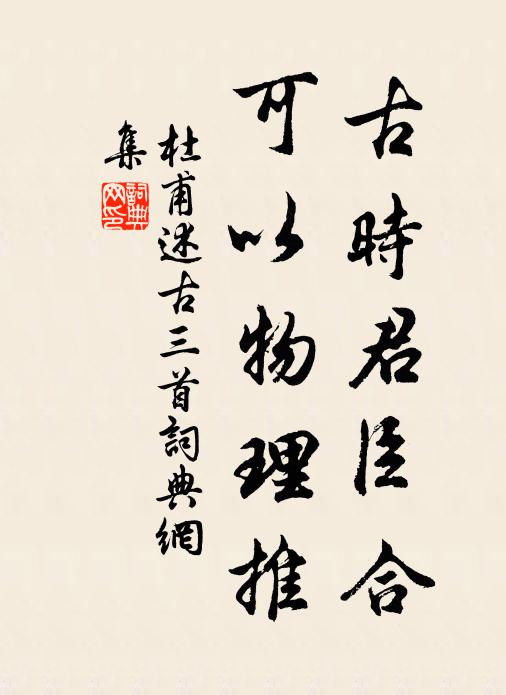 古時君臣合
可以物理推
杜甫述古三首詞典網
集
詞典网印